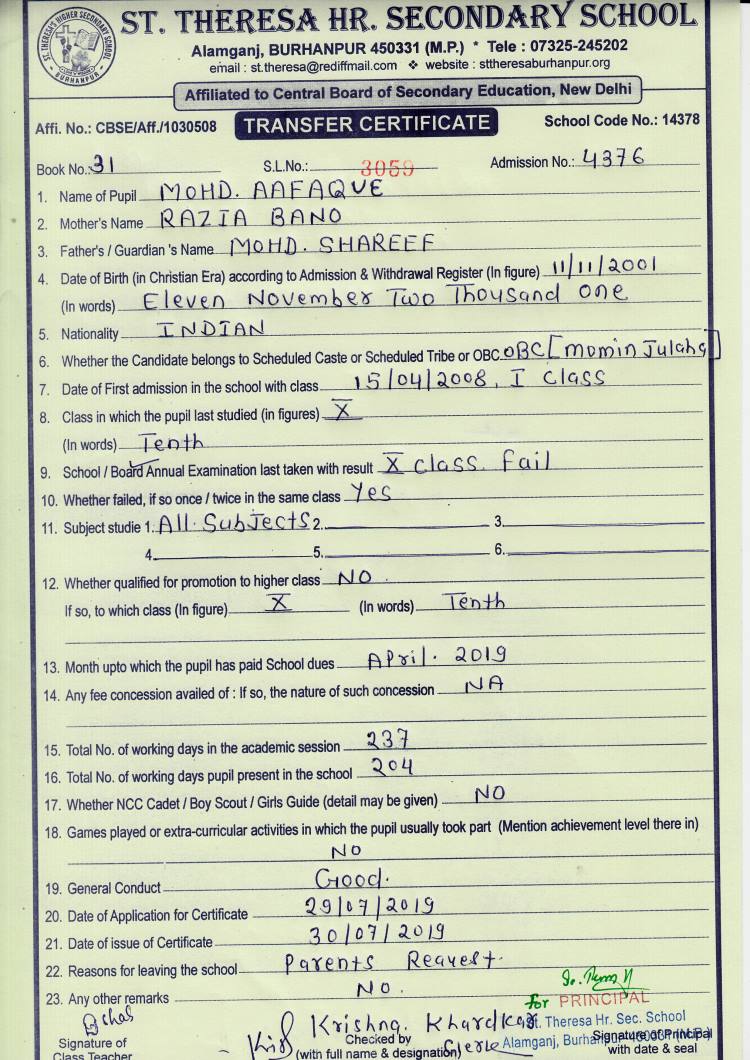 ST. THERESA HR. SECONDARY SCHOOL
Alamganj, BURHANPUR 450331 (M.P.) * Tele : 07325-245202
email : st.theresa@rediffmail.com ❖ website : sttheresaburhanpur.org
Affiliated to Central Board of Secondary Education, New Delhi
Affi. No.: CBSE/Aff./1030508 TRANSFER CERTIFICATE School Code No.: 14378
Book No.: 31 S.L.No.: 3059 Admission No.: 4376
1. Name of Pupil MOHD. AAFAQUE
2. Mother's Name RAZIA BANO
3. Father's / Guardian 's Name MOHD. SHAREEF
4. Date of Birth (in Christian Era) according to Admission & Withdrawal Register (In figure) 11/11/2001
(In words) Eleven November Two Thousand one
5. Nationality INDIAN
6. Whether the Candidate belongs to Scheduled Caste or Scheduled Tribe or OBC. OBC [Momin Julaha]
7. Date of First admission in the school with class 15/04/2008, I class
8. Class in which the pupil last studied (in figures) X
(In words) Tenth
9. School / Board Annual Examination last taken with result X class. Fail
10. Whether failed, if so once / twice in the same class Yes
11. Subject studie 1. All. Subjects 2. 3.
4. 5. 6.
12. Whether qualified for promotion to higher class NO.
If so, to which class (In figure) X (In words) Tenth
13. Month upto which the pupil has paid School dues April. 2019
14. Any fee concession availed of : If so, the nature of such concession NA
15. Total No. of working days in the academic session 237
16. Total No. of working days pupil present in the school 204
17. Whether NCC Cadet / Boy Scout / Girls Guide (detail may be given) NO
18. Games played or extra-curricular activities in which the pupil usually took part (Mention achievement level there in)
NO
19. General Conduct Good.
20. Date of Application for Certificate 29/07/2019
21. Date of issue of Certificate 30/07/2019
22. Reasons for leaving the school Parents Request.
23. Any other remarks NO.
for PRINCIPAL
Krishna. Khardkar St. Theresa Hr. Sec. School
Signature of Checked by Alamganj, Signature of Principal
Class Teacher (with full name & designation) Clerk with date & seal